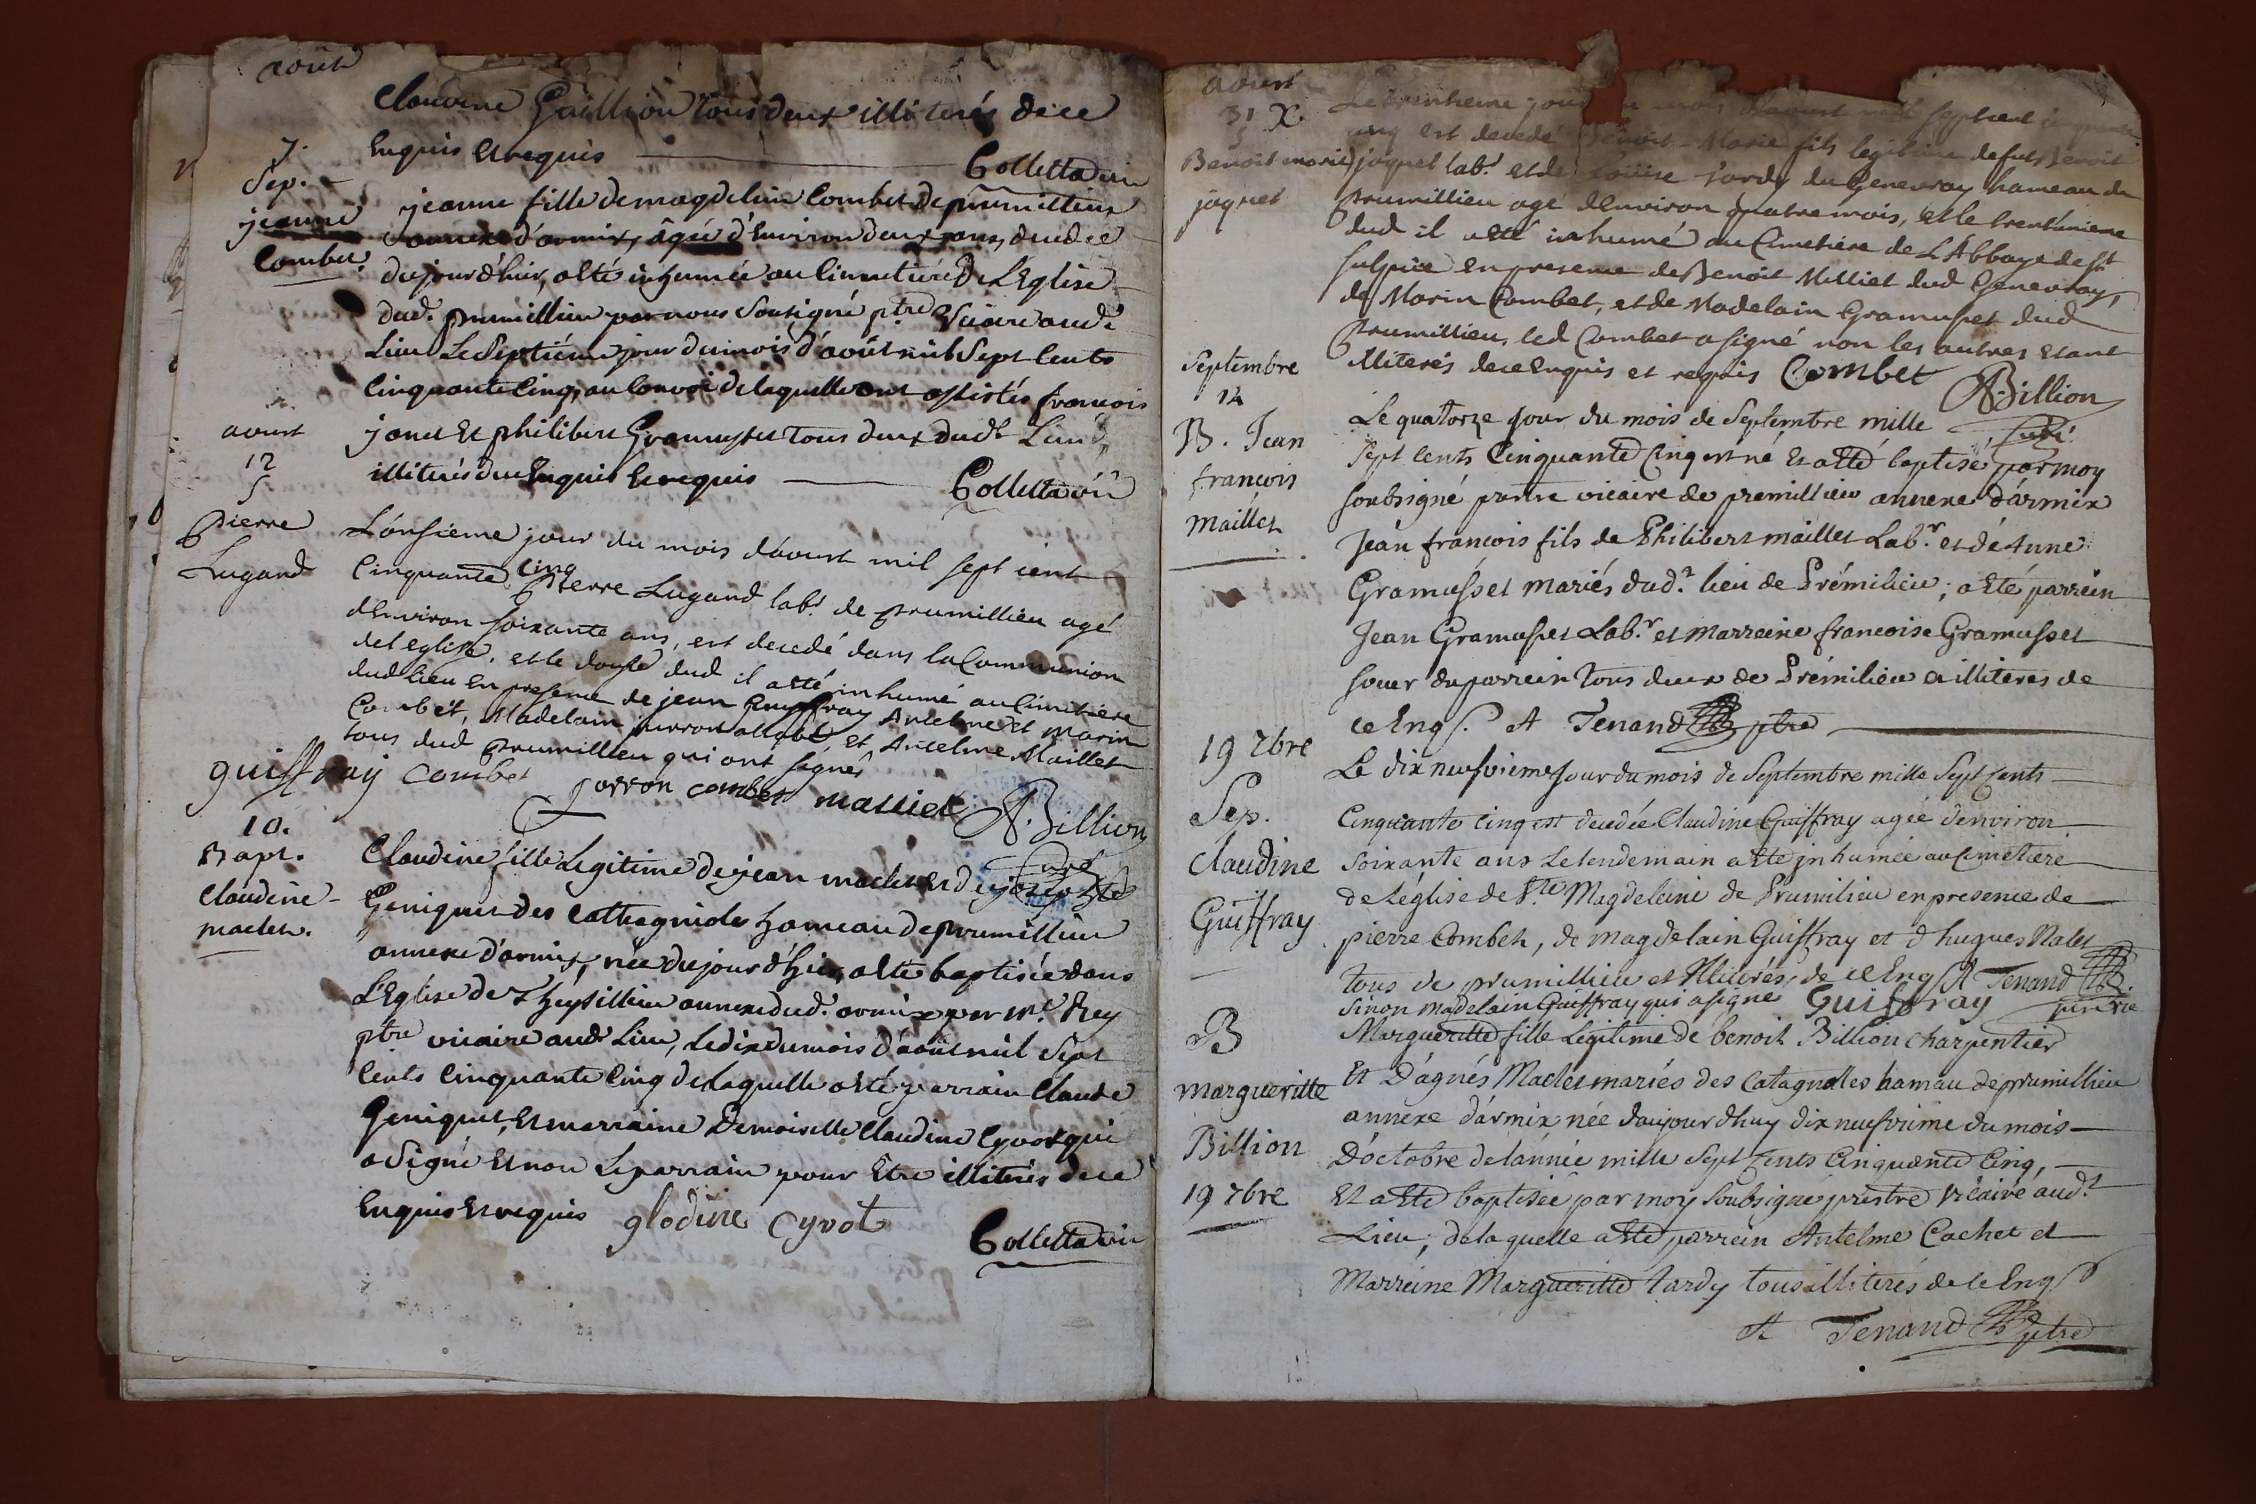 août
Claudine Gaillion tous deux illiterés de ce
Enquis et requis Collettaz vic
7.
Sep.
jeanne
Combet
jeanne fille de magdelain Combet de prumillieux
annexe d'armix, âgée d'Environ deux ans, decedée
du jour d'hier, a été inhumée au Cimetiére de L'Eglise
dud. prumillieu par nous Soussigné ptre Vicaire aud.
Lieu Le Septiéme jour du mois d'août mil Sept Cents
Cinquante Cinq, au Convoi de laquelle ont assistés francois
jonet Et philibert Gramusset tous deux dud. Lieu
illiterés de ce Enquis et requis Collettaz vic
aoust
12
s
Pierre
Lugand
L'onsieme jour du mois d'aoust mil sept cent
Cinquante Cinq Pierre Lugand labr. de prumillieu agé
d'Environ soixante ans, est decedé dans la Communion
de l'eglise, et le douse dud il a été inhumé au Cimetiere
dud lieu En presence de jean Guiffray Antelme et Marin
Combet, Madelain jurron et Antelme Maillet
tous dud prumillieu qui ont signés
guiffray Combet jorron combet mailiet A. Billion
Curé
10.
Bapt.
Claudine
maclet.
Claudine fille Legitime de jean maclet et de josephte
Geniquet des Cathagnoles hameau de prumillieu
annexe d'armix, née du jour d'hier, a été baptisée dans
L'Eglise de Theysillieu annexe dud. armix par Mre. Rey
ptre vicaire aud. Lieu, Le dix du mois d'août mil Sept
Cents Cinquante Cinq de Laquelle a été parrain Claude
Geniquet, Et marraine Demoiselle Claudine Cyvot qui
a Signé Et non Le parrain pour Être illiterés de ce
Enquis Et requis glodine cyvot Collettaz vic
aoust
31 X
s
Benoit marie
jaquet
Le trentieme jour du mois d'aoust mil sept cent cinquante
cinq est decedé Benoit-Marie fils legitime de fut Benoit
jaquet labr. et de Loüise Tardy du Genevray hameau de
Prumillieu agé d'Environ quatre mois, et le trentunieme
dud il a été inhumé au Cimetiere de L'Abbaye de St
sulpice En presence de Benoit Milliet dud Genevray,
de Marin Combet, et de Madelain Gramusset dud
Prumillieu, led Combet a signé non les autres Etant
illiterés de ce Enquis et requis Combet A. Billion
Curé
Septembre
14
B. Jean
francois
maillet
Le quatorze Jour du mois de Septembre mille
Sept Cents Cinquante Cinq est né Et a été baptisé par moy
soubsigné prestre vicaire de premillieu annexe d'armix
Jean francois fils de Philibert maillet Labr. et de Anne
Gramusset mariés dud. lieu de Prémilieu; a été parrein
Jean Gramusset Labr. et Marreine francoise Gramusset
soeur du parrein tous deux de Prémilieu et illiteres de
ce Enq s. A Tenand ptre
19 7bre
Sep.
Claudine
Guiffray
Le dix neufvieme Jour du mois de Septembre mille Sept Cents
Cinquante Cinq est decedée Claudine Guiffray agée d'environ
soixante ans Le lendemain a été inhumée au Cimetiere
de L'eglise de Ste. Magdeleine de Prumilieu en presence de
pierre Combet, de magdelain Guiffray et d'hugues Nalet
tous de prumillieu et illiterés, de ce Enq s A Tenand
sinon madelain Guiffray qui a signé Guiffray ptre vic
B
margueritte
Billion
19 7bre
Margueritte fille Legitime de benoit Billion charpentier
Et D'agnés Maclet mariés des Catagnolles hamau de prumillieu
annexe d'armix née d'aujourd'huy dix neufvieme du mois
D'octobre de l'année mille Sept Cents Cinquante Cinq,
Et a été baptisée par moy soubsigné prestre vicaire aud.
Lieu, de laquelle a été parrein Antelme Cachet et
Marreine Margueritte Tardy tous illiterés de ce Enq s
A Tenand ptre